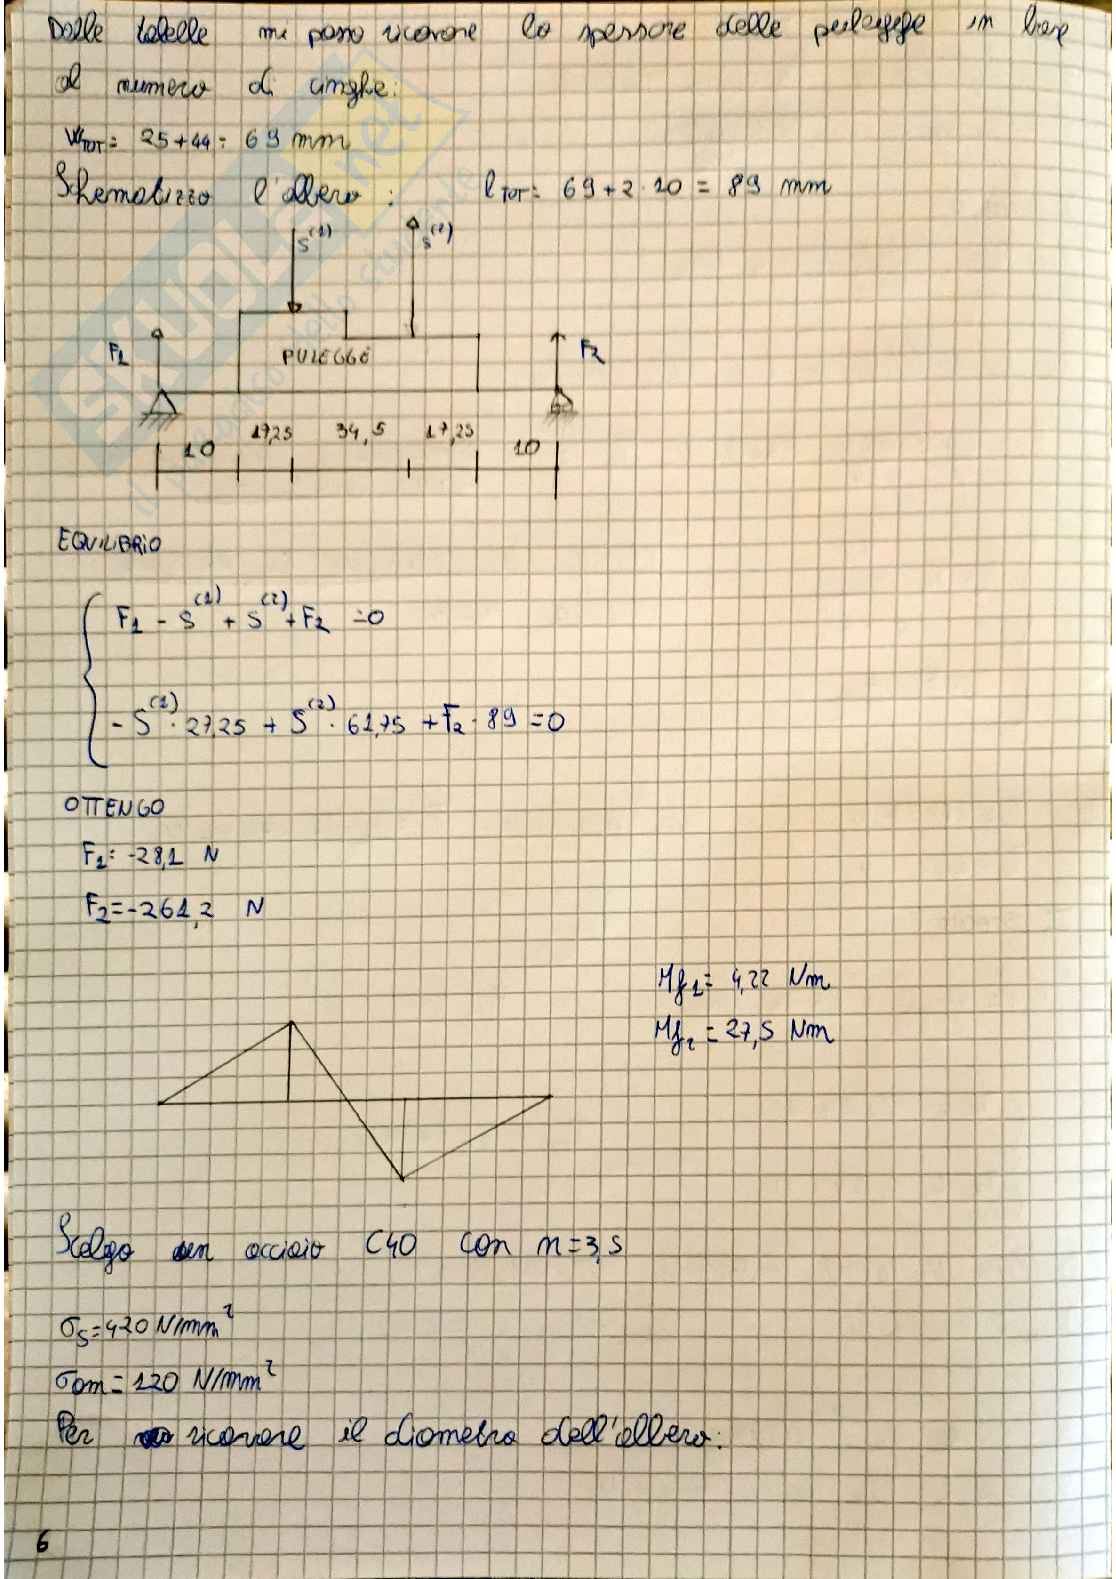 Dalle tabelle mi posso ricavare lo spessore delle pulegge in base
al numero di cinghe:
WTOT= 25+44= 69 mm
Schematizzo l'albero : lTOT= 69+2·10 = 89 mm
S(1) S(2)
F1 PULEGGE F2
10 17,25 34,5 17,25 10
EQUILIBRIO
F1 - S(1) + S(2) + F2 =0
- S(1)· 27,25 + S(2)· 61,75 + F2 · 89 =0
OTTENGO
F1= -28,1 N
F2=-261,2 N
Mf1= 4,22 Nm
Mf2 = 27,5 Nm
Scelgo un acciaio C40 con n=3,5
σs=420 N/mm²
σam= 120 N/mm²
Per ricavare il diametro dell'albero:
6
SKUOLA.net